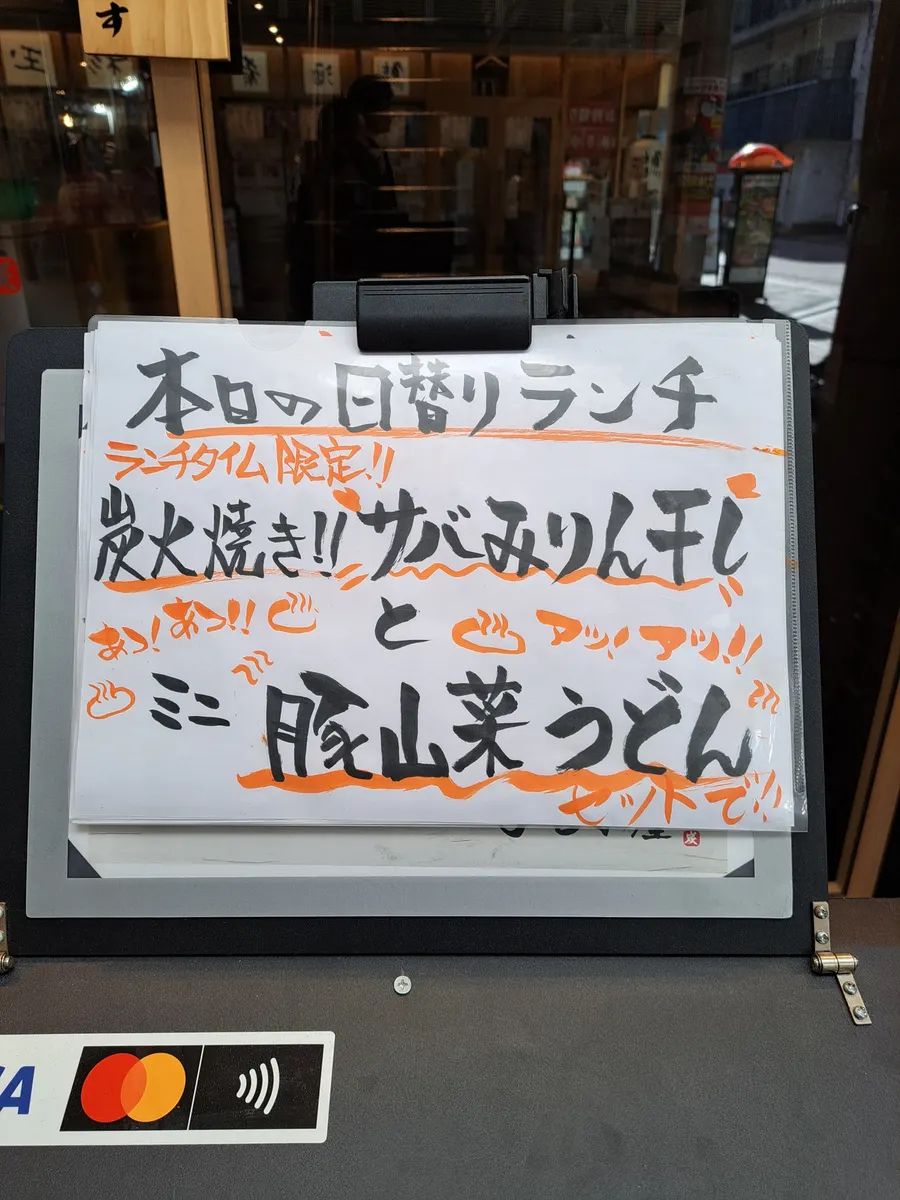 す
本日の日替りランチ
ランチタイム限定!!
炭火焼き!! サバみりん干し
あっ!あっ!!
と
アッ!アッ!!
ミニ
豚山菜うどん
セットで!!
炭
VISA